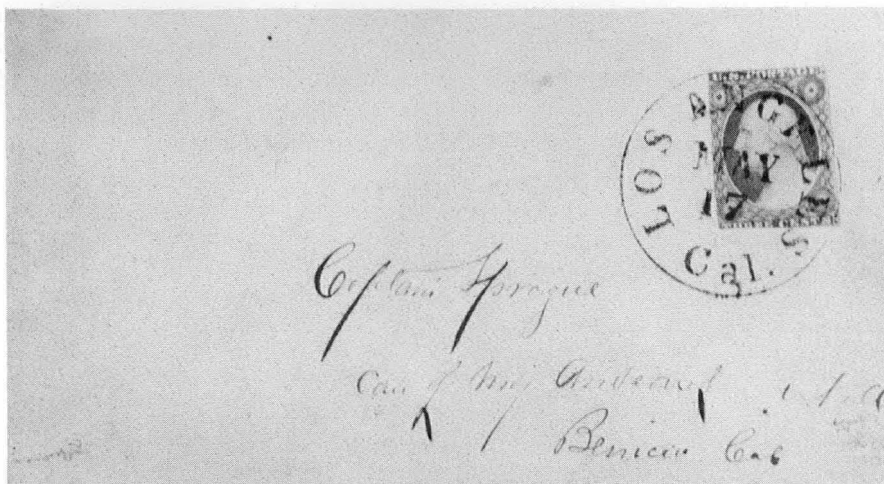 LOS ANGELES
MAY
17
Cal.
Captain Sprague
Care of Maj
Benicia Cal